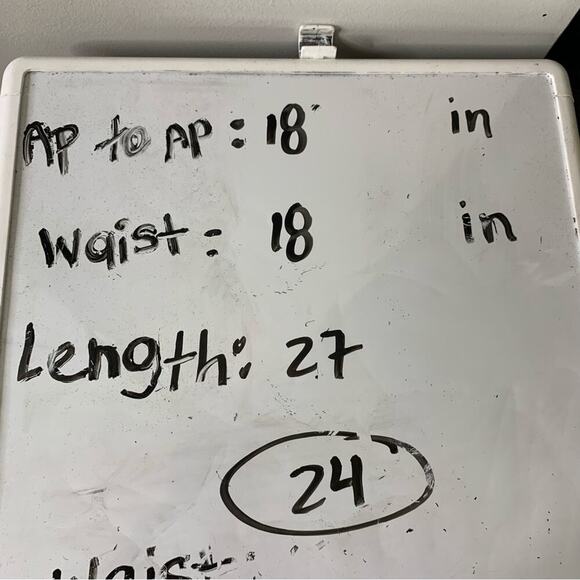 AP to AP: 18" in
Waist: 18 in
Length: 27
24
Waist: